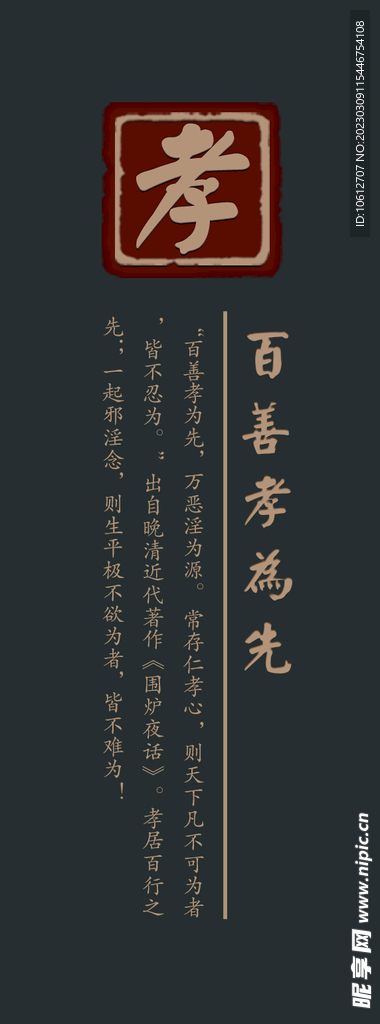 孝
百善孝為先
“百善孝为先，万恶淫为源。常存仁孝心，则天下凡不可为者
，皆不忍为。”出自晚清近代著作《围炉夜话》。孝居百行之
先；一起邪淫念，则生平极不欲为者，皆不难为！
ID:10612707 NO:20230309115446754108
昵享网 www.nipic.cn